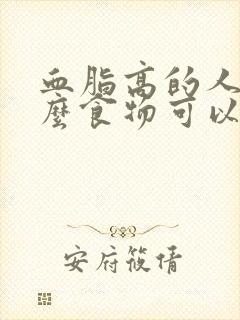 血脂高的人
麼食物可以
安府筱倩